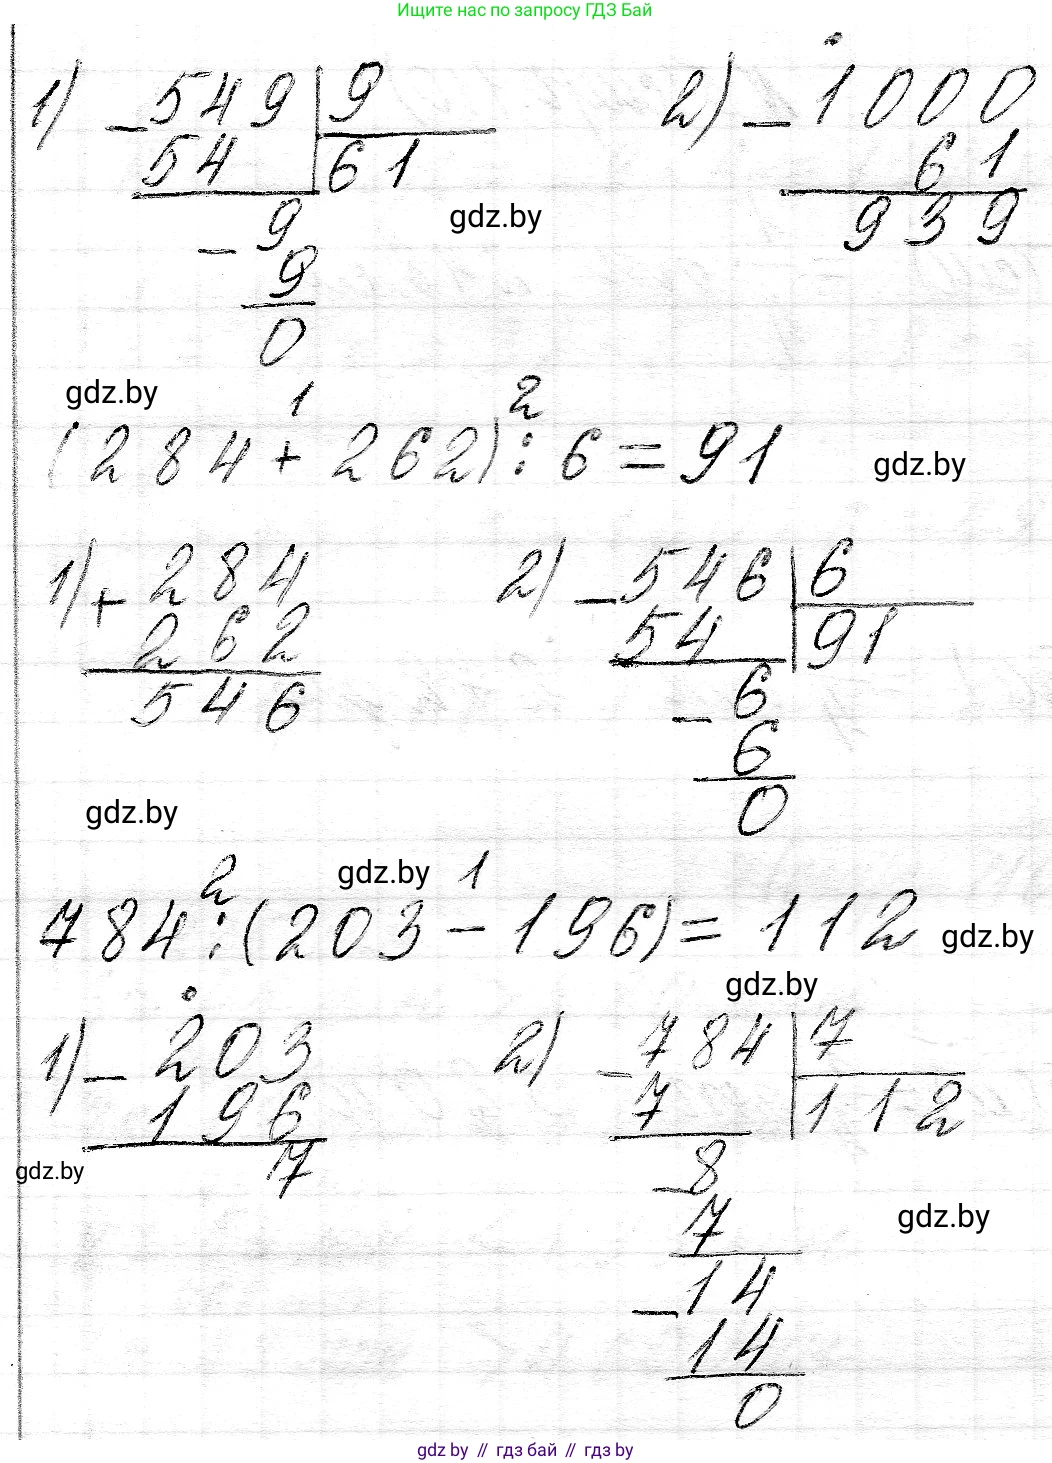 Ищите нас по запросу ГДЗ Бай
1) - 549 | 9
54 | 61
- 9
9
0
2) - 1000
61
939
gdz.by
gdz.by
1 2
(284 + 262) : 6 = 91
gdz.by
1) + 284
262
546
2) - 546 | 6
54 | 91
- 6
6
0
gdz.by
gdz.by
2 1
784 : (203 - 196) = 112
gdz.by
gdz.by
1) - 203
196
7
2) - 784 | 7
7 | 112
- 8
7
- 14
14
0
gdz.by
gdz.by
gdz by // гдз бай // гдз by